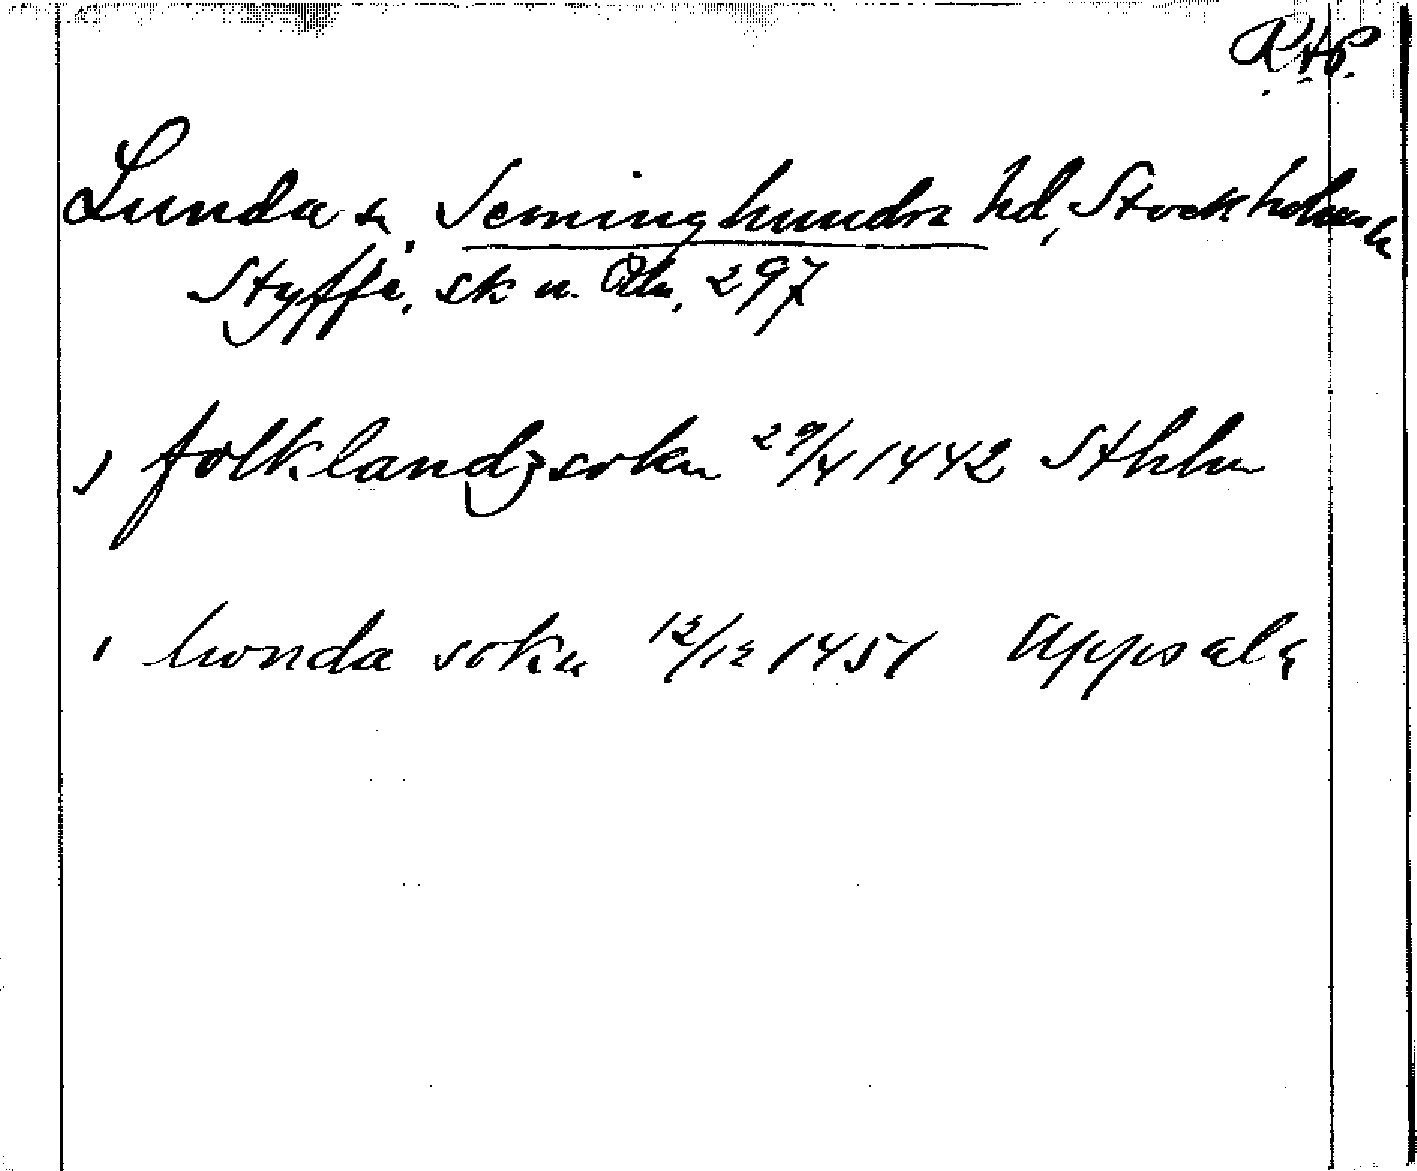 R.A.P.
Lunda sn. Seminghundra hd, Stockholms l.
Styffe, sk u. Un. 297
i folklandz sokn 29/4 1442 Sthlm
i lwnda sokn 12/12 1451 Uppsala